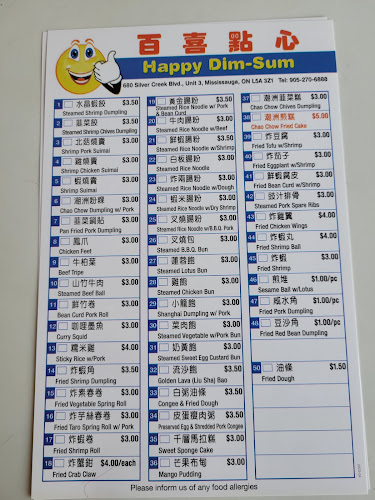 百喜點心
Happy Dim-Sum
680 Silver Creek Blvd., Unit 3, Mississauga, ON L5A 3Z1 Tel: 905-270-6888
1 水晶蝦餃 $3.50
Steamed Shrimp Dumpling
2 韮菜餃 $3.50
Steamed Shrimp Chives Dumpling
3 北菇燒賣 $3.00
Shrimp Pork Suimai
4 雞燒賣 $3.00
Shrimp Chicken Suimai
5 蝦燒賣 $3.00
Shrimp Suimai
6 潮洲粉粿 $3.00
Chao Chow Dumpling w/Pork
7 韮菜鍋貼 $3.00
Pan Fried Pork Dumpling
8 鳳爪 $3.00
Chicken Feet
9 牛柏葉 $3.00
Beef Tripe
10 山竹牛肉 $3.00
Steamed Beef Ball
11 鮮竹卷 $3.00
Bean Curd Pork Roll
12 咖喱墨魚 $3.00
Curry Squid
13 糯米雞 $4.00
Sticky Rice w/Pork
14 炸蝦角 $3.50
Fried Shrimp Dumpling
15 炸素春卷 $3.00
Fried Vegetable Spring Roll
16 炸芋絲春卷 $3.00
Fried Taro Spring Roll w/ Pork
17 炸蝦卷 $3.00
Fried Shrimp Roll
18 炸蟹鉗 $4.00/each
Fried Crab Claw
19 黃金腸粉 $3.50
Steamed Rice Noodle w/ Pork
& Bean Curd
20 牛肉腸粉 $3.00
Steamed Rice Noodle w/Beef
21 鮮蝦腸粉 $3.50
Steamed Rice Noodle w/Shrimp
22 白板腸粉 $3.00
Steamed Rice Noodle
23 炸兩腸粉 $3.50
Steamed Rice Noodle w/Dough
24 蝦米腸粉 $3.50
Steamed Rice Noodle w/Dry Shrimp
25 叉燒腸粉 $3.50
Steamed Rice Noodle w/B.B.Q. Pork
26 叉燒包 $3.00
Steamed B.B.Q. Bun
27 蓮蓉飽 $3.00
Steamed Lotus Bun
28 雞飽 $3.00
Steamed Chicken Bun
29 小籠飽 $3.00
Shanghai Dumpling w/ Pork
30 菜肉飽 $3.00
Steamed Vegetable w/Pork Bun
31 奶黃飽 $3.00
Steamed Sweet Egg Custard Bun
32 流沙飽 $3.50
Golden Lava (Liu Sha) Bao
33 白粥油條 $3.50
Congee & Fried Dough
34 皮蛋瘦肉粥 $3.50
Preserved Egg & Shredded Pork Congee
35 千層馬拉糕 $3.00
Sweet Sponge Cake
36 芒果布甸 $3.00
Mango Pudding
37 潮洲韮菜糕 $3.00
Chao Chow Chives Dumpling
38 潮洲煎糕 $5.00
Chao Chow Fried Cake
39 炸豆腐 $3.00
Fried Tofu w/Shrimp
40 炸茄子 $3.00
Fried Eggplant w/Shrimp
41 鮮蝦腐皮 $3.00
Fried Bean Curd w/Shrimp
42 豉汁排骨 $3.00
Steamed Pork Spare Ribs
43 炸雞翼 $4.00
Fried Chicken Wings
44 炸蝦丸 $4.00
Fried Shrimp Ball
45 炸蝦 $3.00
Fried Shrimp
46 煎堆 $1.00/pc
Sesame Ball w/Lotus
47 咸水角 $1.00/pc
Fried Pork Dumpling
48 豆沙角 $1.00/pc
Fried Red Bean Dumpling
50 油條 $1.50
Fried Dough
Please inform us of any food allergies